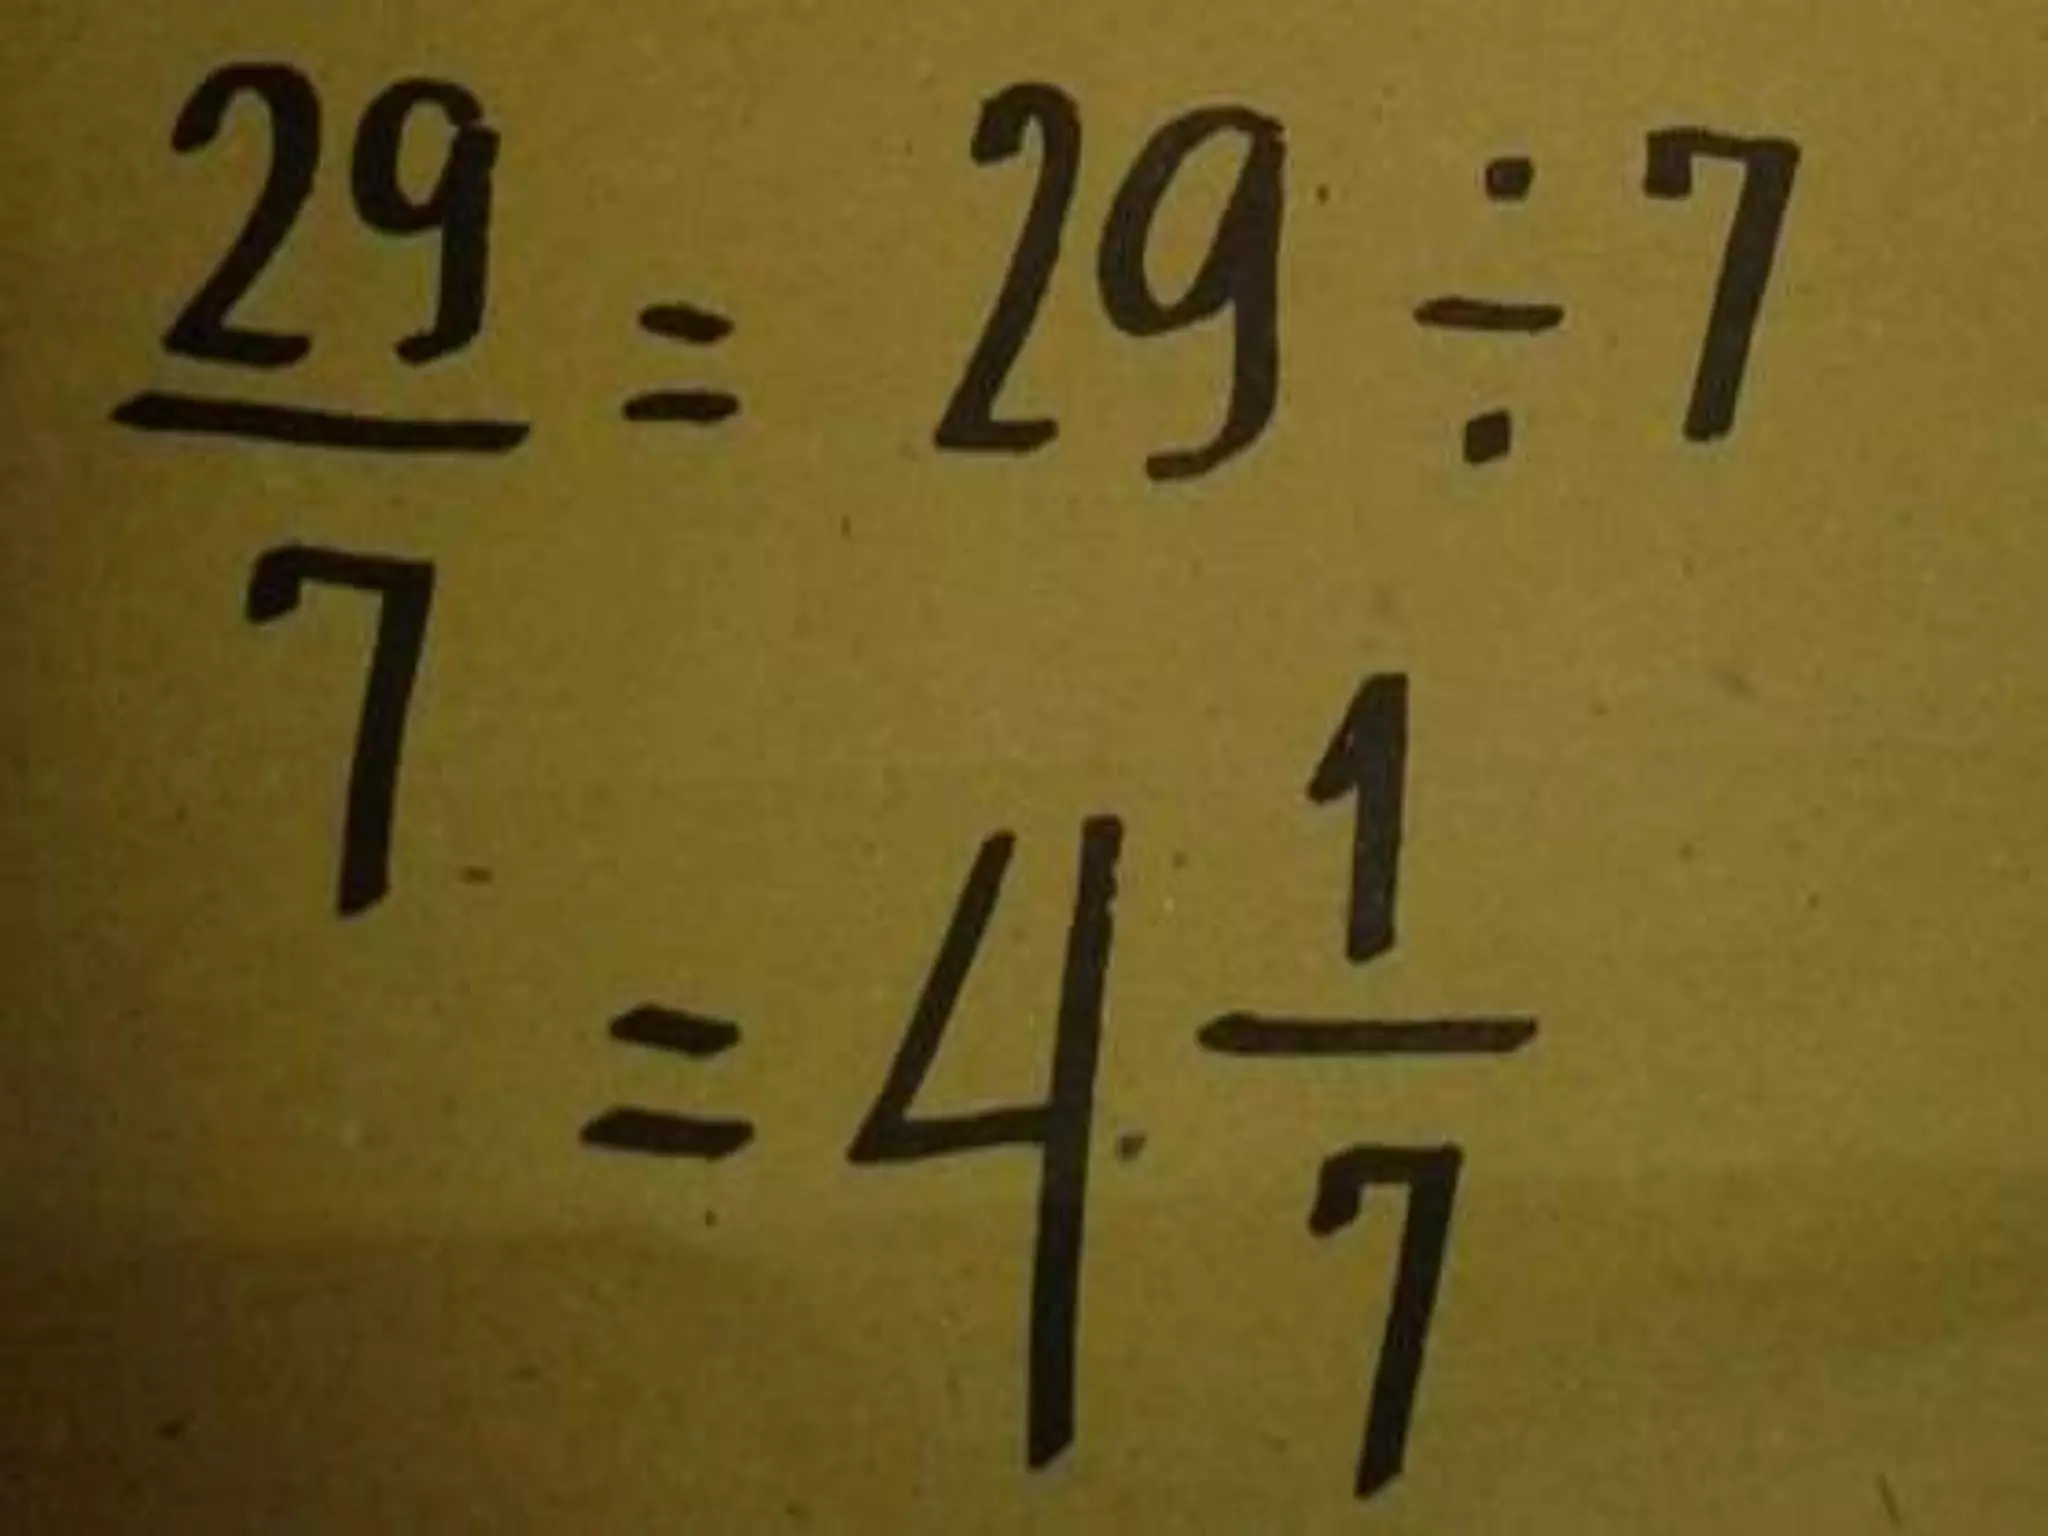 29/7 = 29 ÷ 7
= 4 1/7